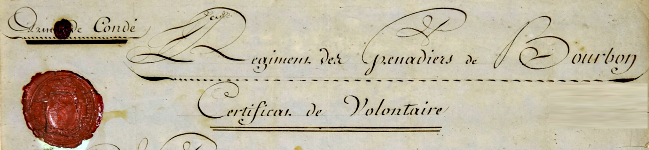 Armée de Condé
Regiment des Grenadiers de Bourbon
Certificat de Volontaire